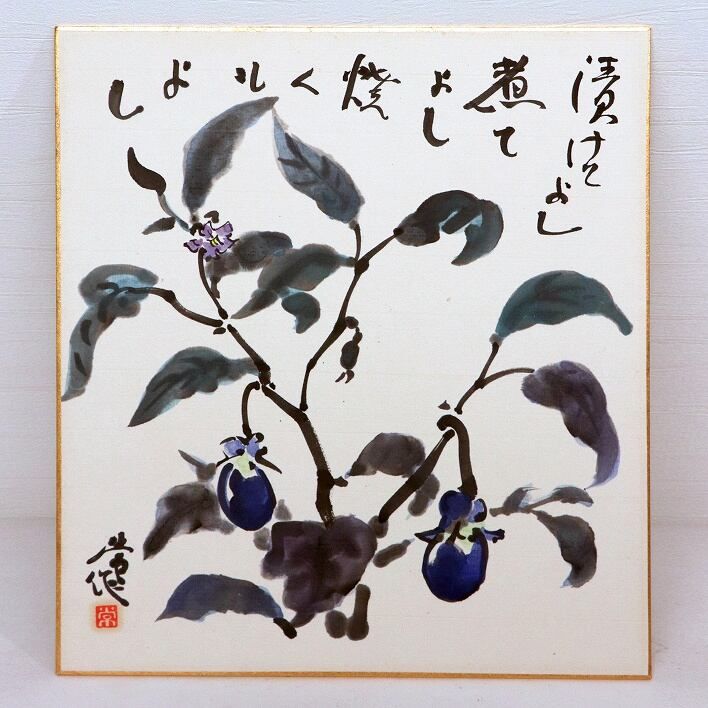 漬けてよし
煮て
よし
焼
く
も
よ
し
常作
常